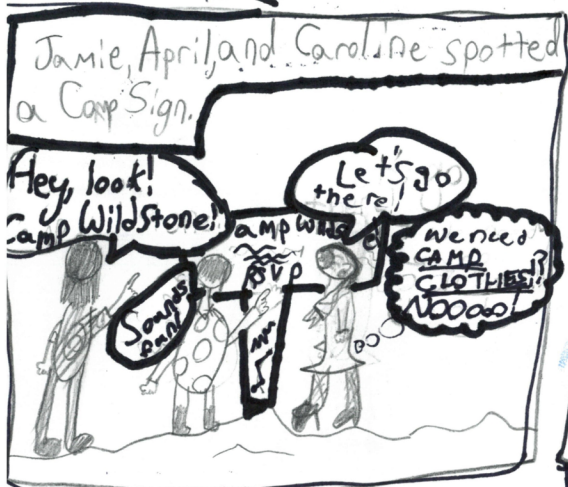 Jamie, April, and Caroline spotted
a Camp Sign.
Hey, look!
Camp WildStone!
Let's go
there!
Sounds
fun!
amp Wilds e
RSVP
We need
CAMP
CLOTHES!?
NOOOOO!